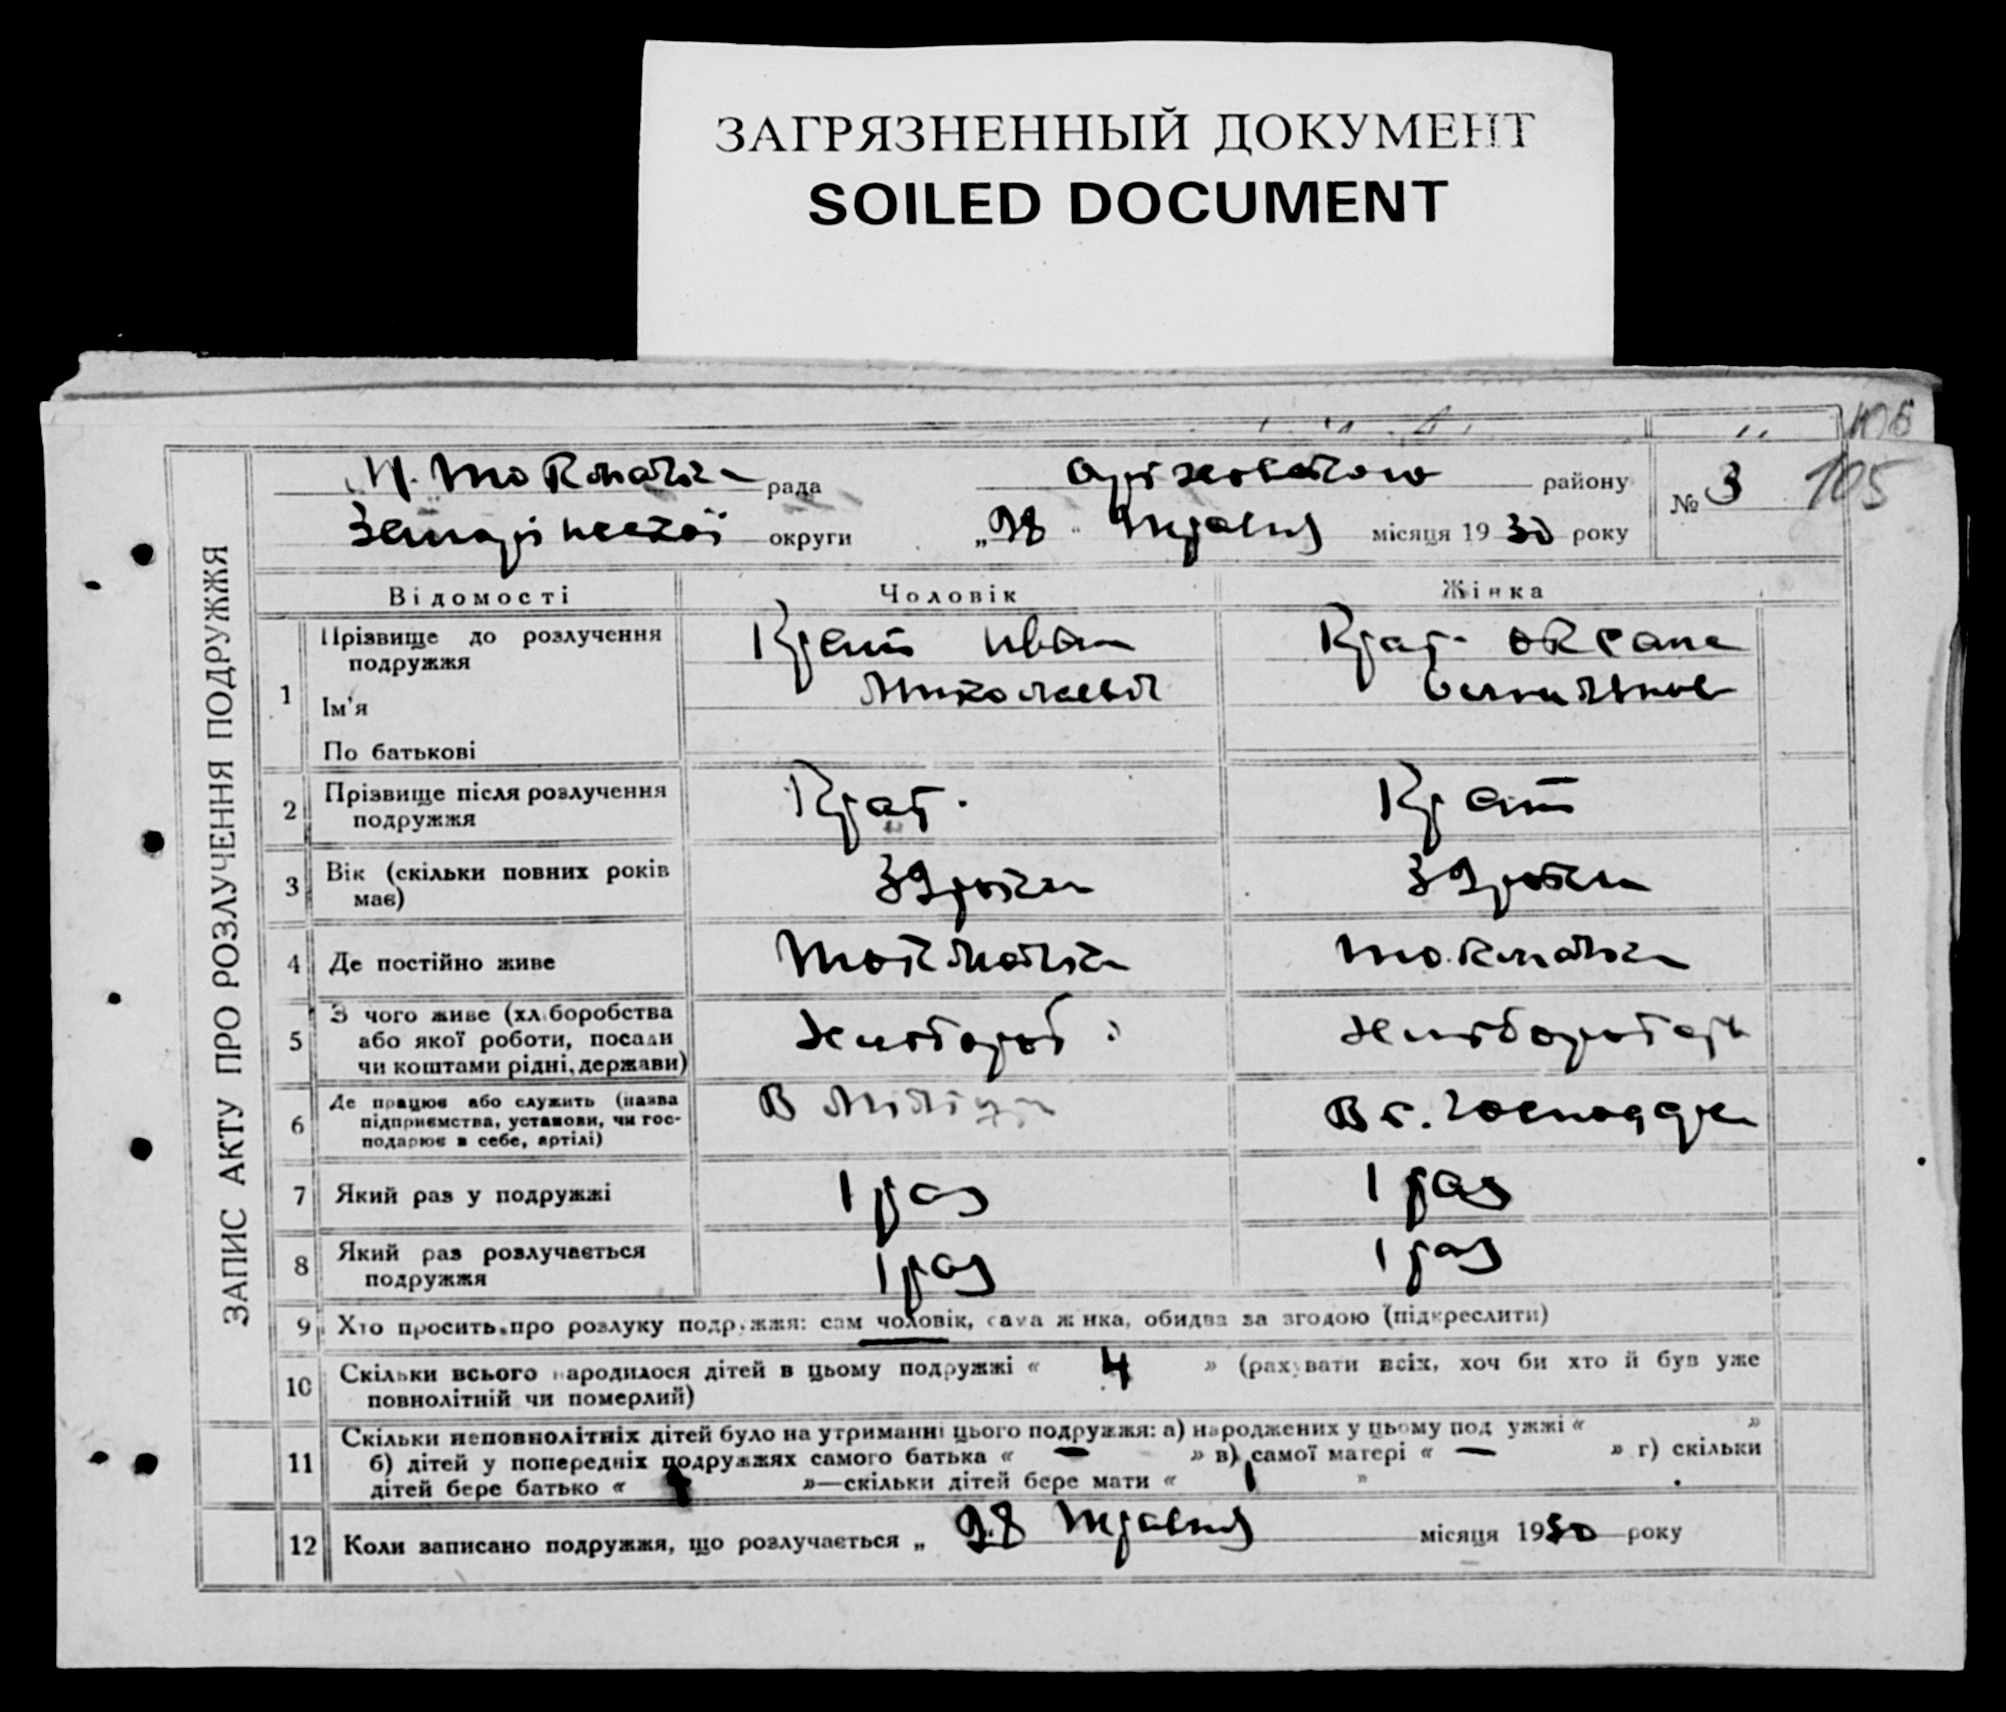 ЗАГРЯЗНЕННЫЙ ДОКУМЕНТ
SOILED DOCUMENT
106
105
ЗАПИС АКТУ ПРО РОЗЛУЧЕННЯ ПОДРУЖЖЯ
рада
району
№ 3
округи „28 " Травня місяця 1930 року
Відомості Чоловік Жінка
1 Прізвище до розлучення
подружжя
Ім'я
По батькові
Крат Иван
Миколаевич
Крат Оксана
2 Прізвище після розлучення
подружжя
Крат. Крат
3 Вік (скільки повних років
має)
39 роки 39 роки
4 Де постійно живе
Токмачка Токмачка
5 З чого живе (хліборобства
або якої роботи, посади
чи коштами рідні, держави)
Хлібороб Хлібороб
6 Де працює або служить (назва
підприємства, установи, чи гос-
подарює в себе, артілі)
В міліції В с. господар
7 Який раз у подружжі 1 раз 1 раз
8 Який раз розлучається
подружжя
1 раз 1 раз
9 Хто просить про розлуку подружжя: сам чоловік, сама жінка, обидва за згодою (підкреслити)
10 Скільки всього народилося дітей в цьому подружжі « 4 » (рахувати всіх, хоч би хто й був уже
повнолітній чи померлий)
11 Скільки неповнолітніх дітей було на утриманні цього подружжя: а) народжених у цьому подружжі « »
б) дітей у попередніх подружжях самого батька « — » в) самої матері « — » г) скільки
дітей бере батько « »—скільки дітей бере мати « 1 »
12 Коли записано подружжя, що розлучається „ 28 Травня місяця 1930 року